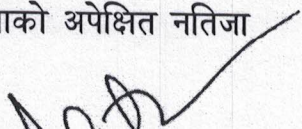 ाको अपेक्षित नतिजा